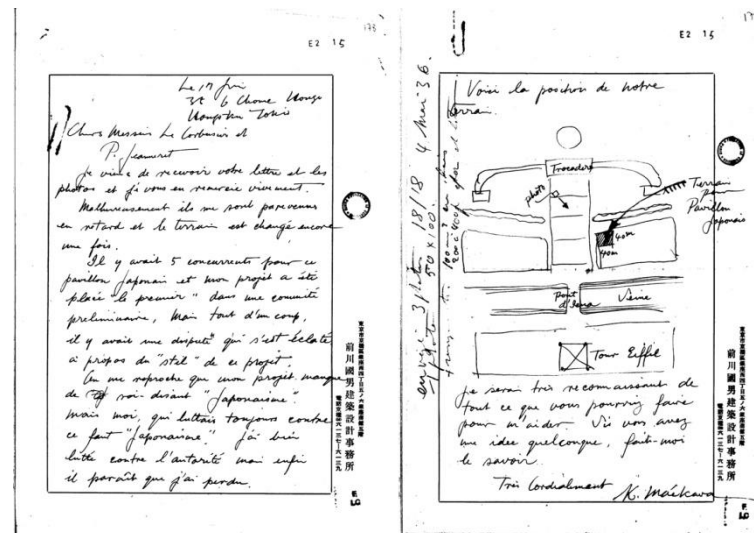 173
E2 15
Le 17 Juin
Chers Messieurs Le Corbusier et
P. Jeanneret
Je viens de recevoir votre lettre et les
photos et je vous en remercie vivement.
Malheureusement ils me sont parvenues
en retard et le terrain est changé encore
une fois.
Il y avait 5 concurrents pour ce
pavillon Japonais et mon projet a été
placé "le premier" dans une comité
preliminaire, Mais tout d'un coup,
il y avait une dispute qui s'est éclaté
à propos du "stil" de ce projet.
On me reproche que mon projet manque
de soi-disant "Japonaisme"
mais moi, qui luttais toujours contre
ce faut "Japonaisme". J'ai bien
lutté contre l'autorité mais enfin
il paraît que j'ai perdu.
前川國男建築設計事務所
E2 15
Voici la position de notre
terrain.
Trocadero
photo
Terrain
pour
Pavillon
Japonais
40m
40m
Pont
d'Iena
Seine
Tour Eiffel
Je serai très reconnaissant de
tout ce que vous pourriez faire
pour m'aider. Si vous avez
une idée quelconque, fait-moi
le savoir.
Très Cordialement
K. Maékawa
18/18 4 Mai 36.
50 x 100.
前川國男建築設計事務所